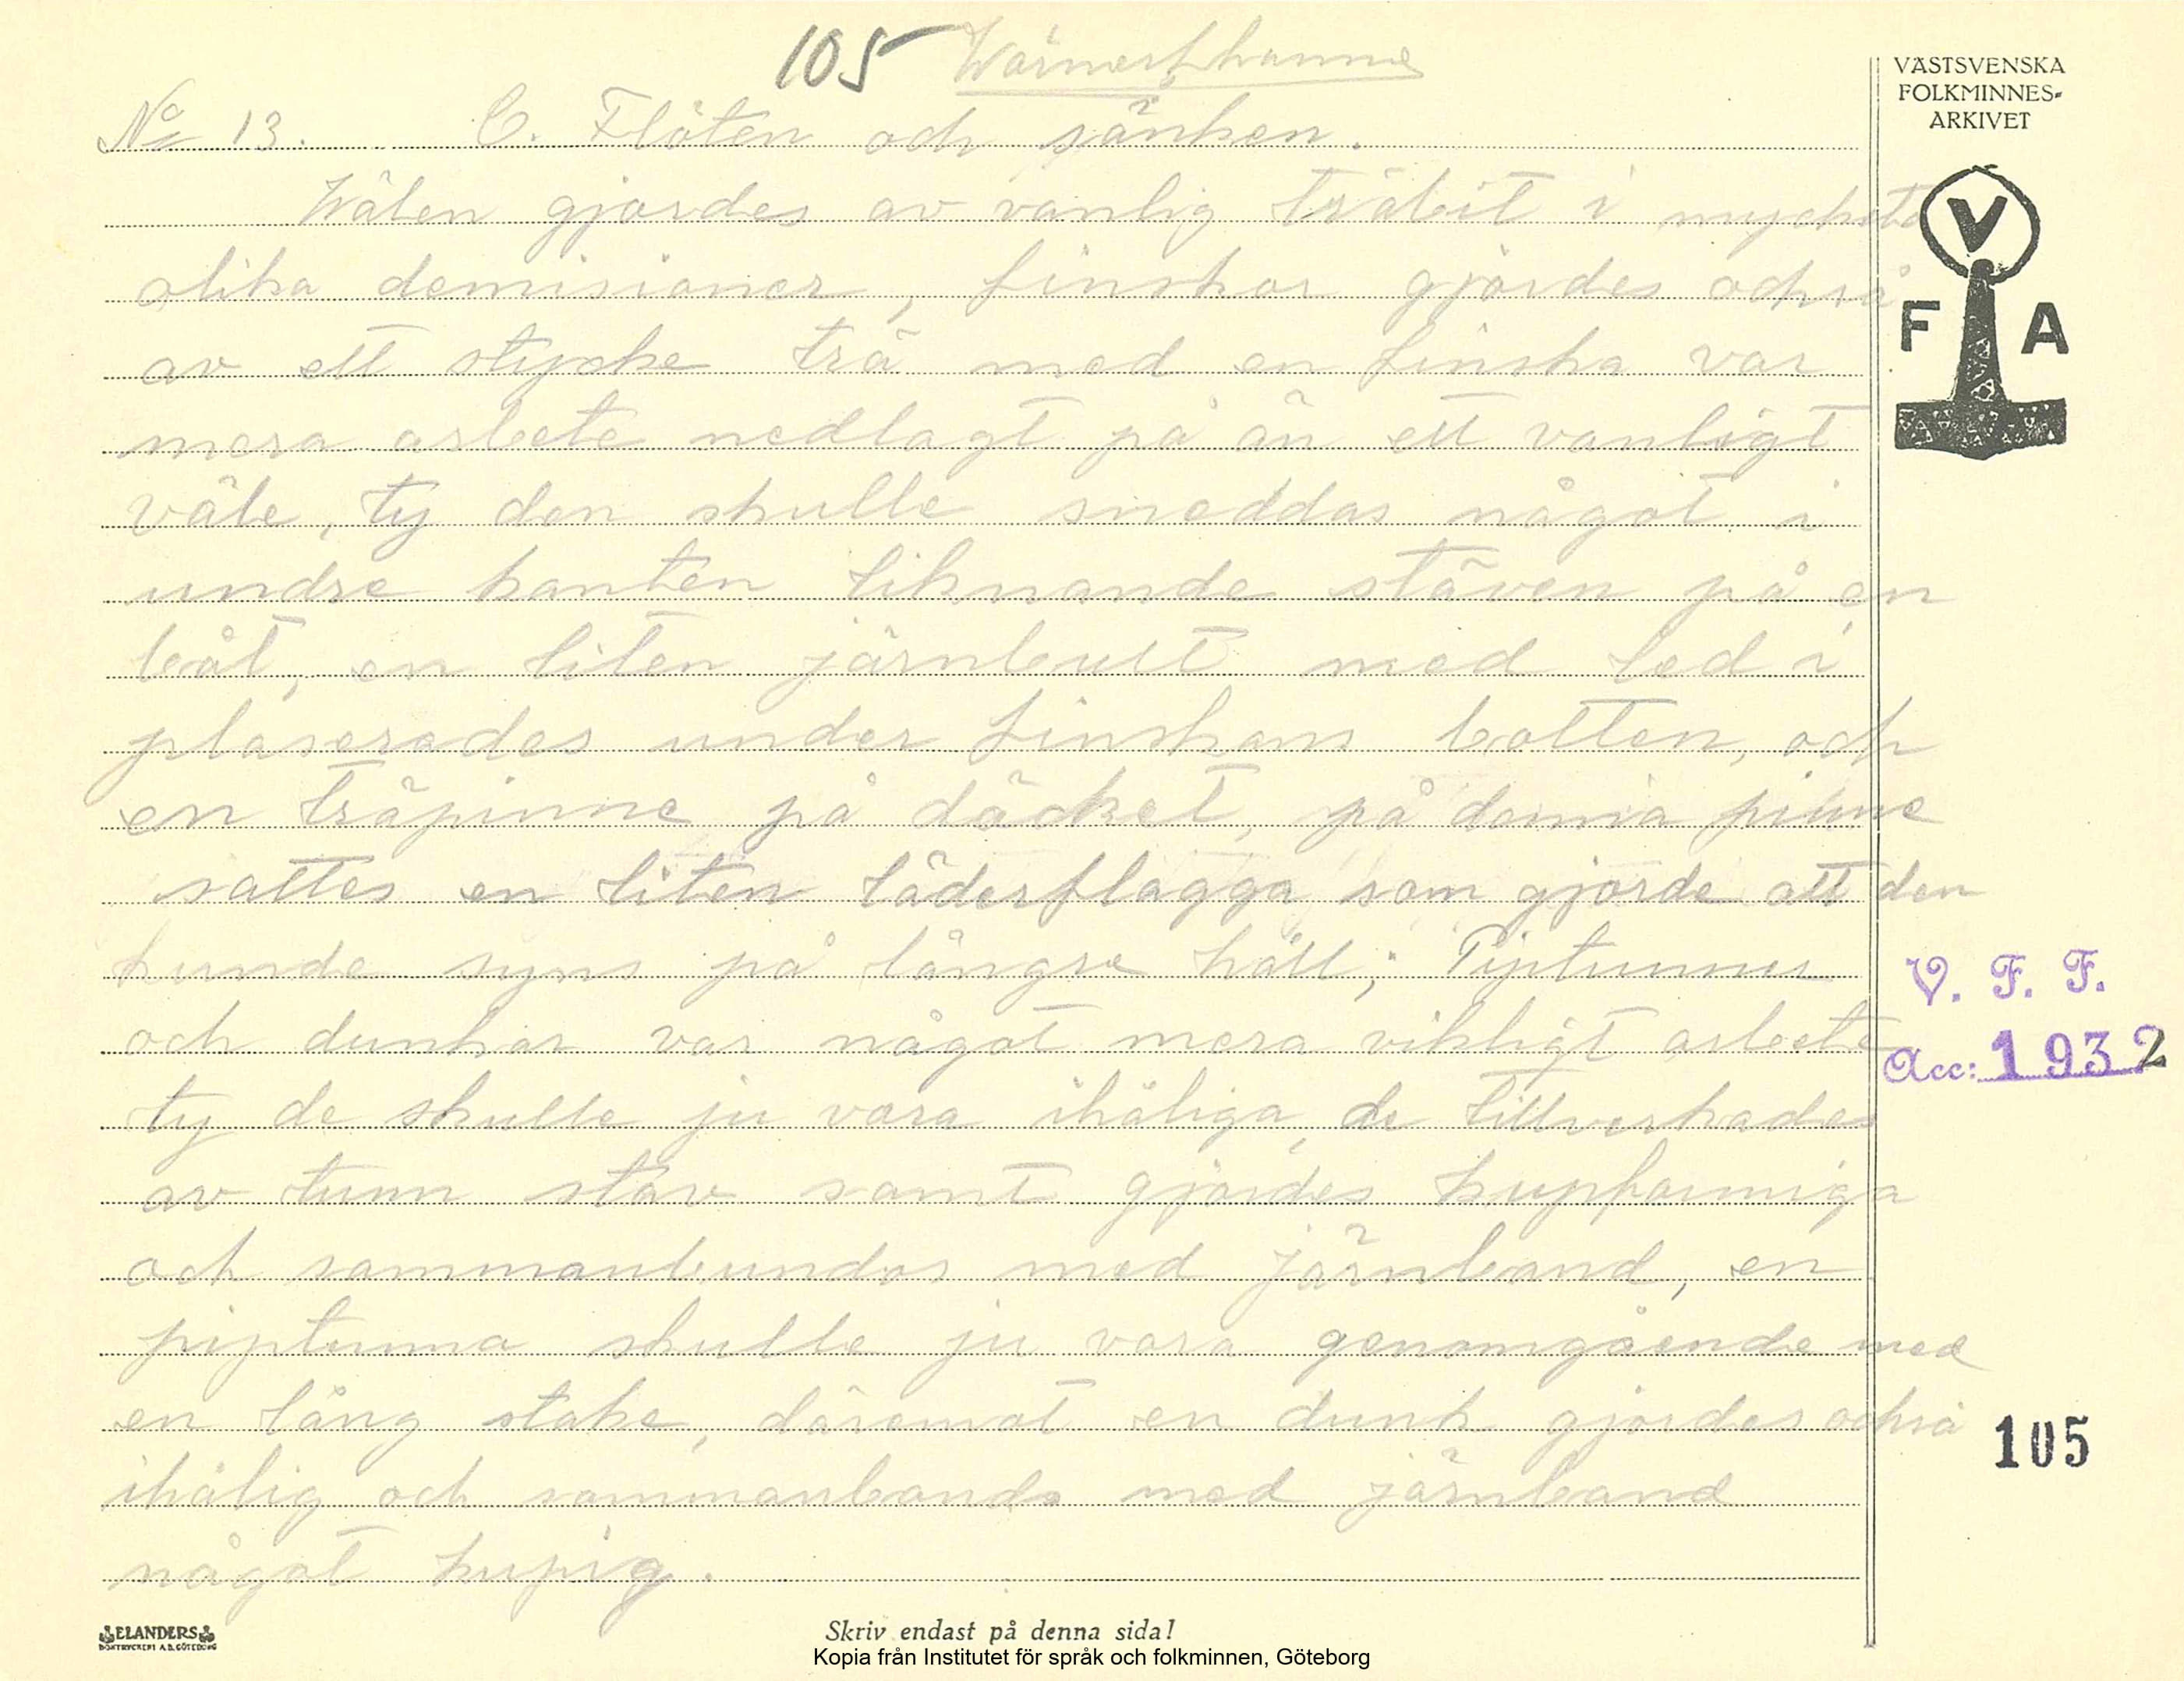 105 Wärnershamn
VÄSTSVENSKA
FOLKMINNES-
ARKIVET
No 13. C. Flöten och sänken.
Wålen gjordes av vanlig träbit i myckete
olika demisioner, linskor gjordes också
av ett stycke trä med en linska var
mera arbete nedlagt på än ett vanligt
våle, ty den skulle sneddas något i
undre kanten liknande stäven på en
båt, en liten järnbult med led i
plaserades under linskans botten, och
en träpinne på däcket, på denna pinne
sattes en liten läderflagga som gjorde att den
kunde syns på långre håll; Piptunner
och dunkar var något mera vikligt arbete
ty de skulle ju vara ihåliga, de tillverkades
av tunn stäv samt gjordes kupformiga
och sammanbundos med järnband, en
piptunna skulle ju vara genomgående med
en lång stake, däremot en dunk gjordes också
ihålig och sammanbands med järnband
något kupig.
V
F A
V. F. F.
Acc: 1932
105
ELANDERS
BOKTRYCKERI A.B. GÖTEBORG
Skriv endast på denna sida!
Kopia från Institutet för språk och folkminnen, Göteborg